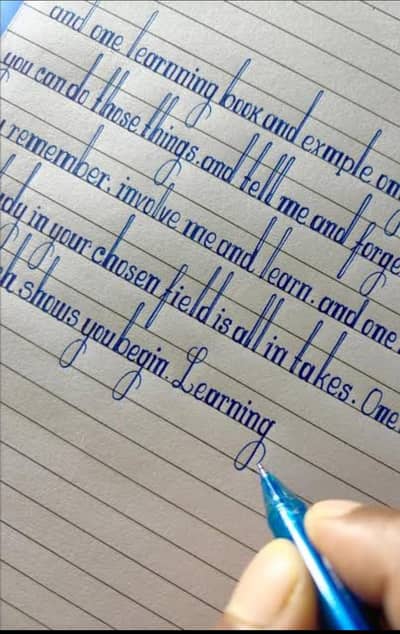 and one learnning book and exmple on
you can do those things. and tell me and forge
remember. involve me and learn. and one
dy in your chosen field is all in takes. One
h shows you begin. Learning